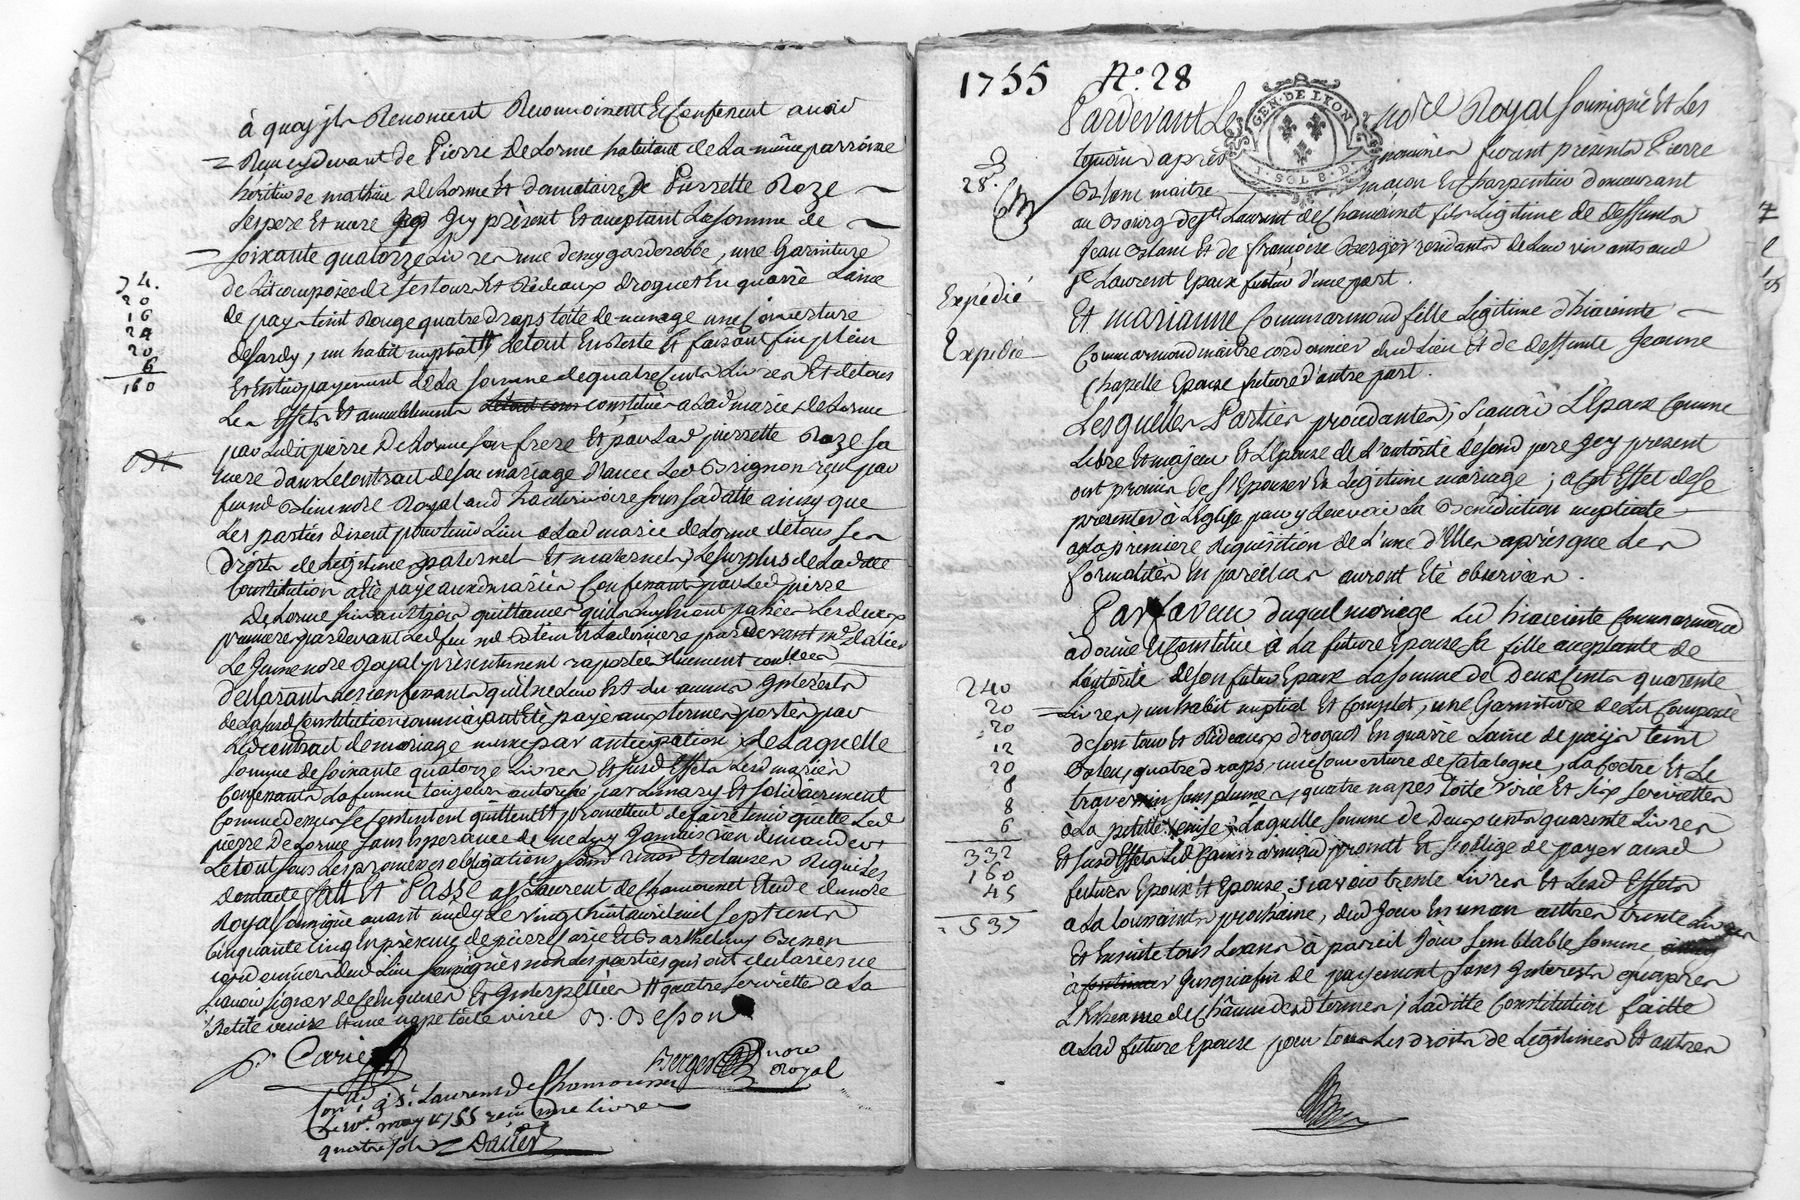 à quoy ils Renoncent Reconnoissent Et Confessent avoir
Reçu cydevant de Pierre Delorme habitant de La même parroisse
heritier de mathieu delorme Et donnataire de Pierrette Roze
Ses pere Et mere Icy présent Et acceptant La somme de
soixante quatorze Livres une demy garderobbe, une Garniture
de Lit composée de ses tours Et Rideaux droguet En quarré Laine
de pays teint Rouge quatre draps toile de menage une Couverture
de , un habit nuptial Le tout En Reste Et faisant fin plein
Et Entier payement de La somme de quatre Cents Livres Et de tous
Les Effets Et ameublements constitués a Lad marie delorme
par Ledit pierre Delorme son frere Et par Lad pierrette Roze sa
mere dans Le Contrat de son mariage d'avec Led Brignon reçu par
feu me nore Royal aud sous sa datte ainsy que
Les parties disent pour tenir Lieu a Lad marie delorme de tous ses
droits de Legitimes paternel Et maternel, Le surplus de Ladite
Constitution a été payé auxd mariés Confessants par Led pierre
Delorme suivant Les quittances qu'ils Luy En ont passées Les deux
premieres pardevant Led feu me Et La derniere pardevant me Dalier
Le Jeune nore Royal présentement raportées duement controllées
declarant Lesd confessants qu'il ne Leur Est du aucuns Interests
de Lasusd Constitution comme ayant Eté payé aux termes portés par
Led contrat de mariage même par anticipation, de Laquelle
somme de soixante quatorze Livres Et susd Effets Lesd mariés
Confessants La femme toujours autorisée par son mary Et solidairement
comme dessus se contentent quittent Et promettent de faire tenir quitte Led
pierre Delorme sans Esperance de ne Luy Jamais rien demander
Le tout sous Les promesses obligations soum renon Et clauses Requises
dont acte Fait Et Passé a St Laurent de Chamousset Etude du nore
Royal soussigné avant midy Le vingt huit avril mil sept cents
Cinquante Cinq En présence de pierre Carié Et Barthelemy Besson
cordonniers dud Lieu soussignés non Les parties qui ont declaré ne
scavoir signer de ce Enquises Et Interpellées # quatre serviette a La
petite venise Et une nape toile virée B. Besson
p. Carié
Berger nore
Royal
Conlé a St Laurent de Chamousset
Le may 1755 reçu une Livre
quatre sols Dalier
74.
20
16
24
20
6
160
1755 No. 28
GEN. DE LYON
1. SOL 8. D.
Pardevant Le nore Royal soussigné Et Les
temoins après nommés furent présents Pierre
Blanc maitre macon Et charpentier demeurant
au Bourg de St Laurent de Chamousset fils Legitime de deffunts
Jean Blanc Et de françoise Berger residants de Leur vivants aud
St Laurent Epoux futur d'une part.
Et marianne Commarmond fille Legitime d'hiacinte
Commarmond maitre cordonnier dud Lieu Et de deffunte Jeanne
Chapelle Epouse future d'autre part.
Lesquelles Parties procedantes, scavoir L'Epoux Comme
Libre Et majeur Et L'Epouse de L'autorité de sond pere Icy present
ont promis de s'Epouser En Legitime mariage; a Cet Effet de se
presenter à L'église pour y Recevoir La Benediction nuptiale
a La premiere Requisition de L'une d'Elles après que Les
formalités En pareil cas auront Eté observées.
En faveur duquel mariage Led hiacinte Commarmond
a donné Et Constitué à La future Epouse sa fille acceptante de
L'autorité de son futur Epoux La somme de Deux Cents quarente
Livres, un habit nuptial Et Complet, une Garniture de Lit Composée
de son tour Et Rideaux droguet En quarré Laine de pays teint
Bleu, quatre draps, une Couverture de Catalogne, La Coetre Et Le
traversin sans plumes, quatre napes toile virée Et six serviettes
à La petitte venise, Laquelle somme de Deux cents quarente Livres
Et susd Effets Led Commarmond promet Et s'oblige de payer auxd
futurs Epoux Et Epouse, scavoir trente Livres Et Lesd Effets
a La toussaints prochaine, dud Jour En un an autres trente Livres
Et Ensuite tous Les ans à pareil Jour semblable somme
à Jusqu'a fin de payement sans Interests qu'apres
L'Echeance de Chacun desd termes, Laditte Constitution faitte
a Lad future Epouse pour tous Les droits de Legitimes Et autres
28.
Expédié
Expédié
240
20
20
12
20
8
8
6
332
160
45
537